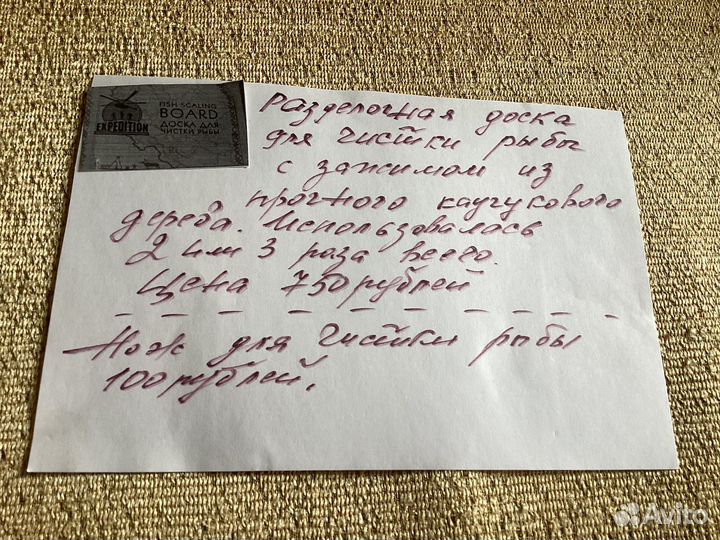 FISH SCALING
BOARD
ДОСКА ДЛЯ
ЧИСТКИ РЫБЫ
EXPEDITION
Разделочная доска
для чистки рыбы
с зажимом из
прочного каучукового
дерева. Использовалась
2 или 3 раза всего.
Цена 750 рублей
Нож для чистки рыбы
100 рублей.
Avito